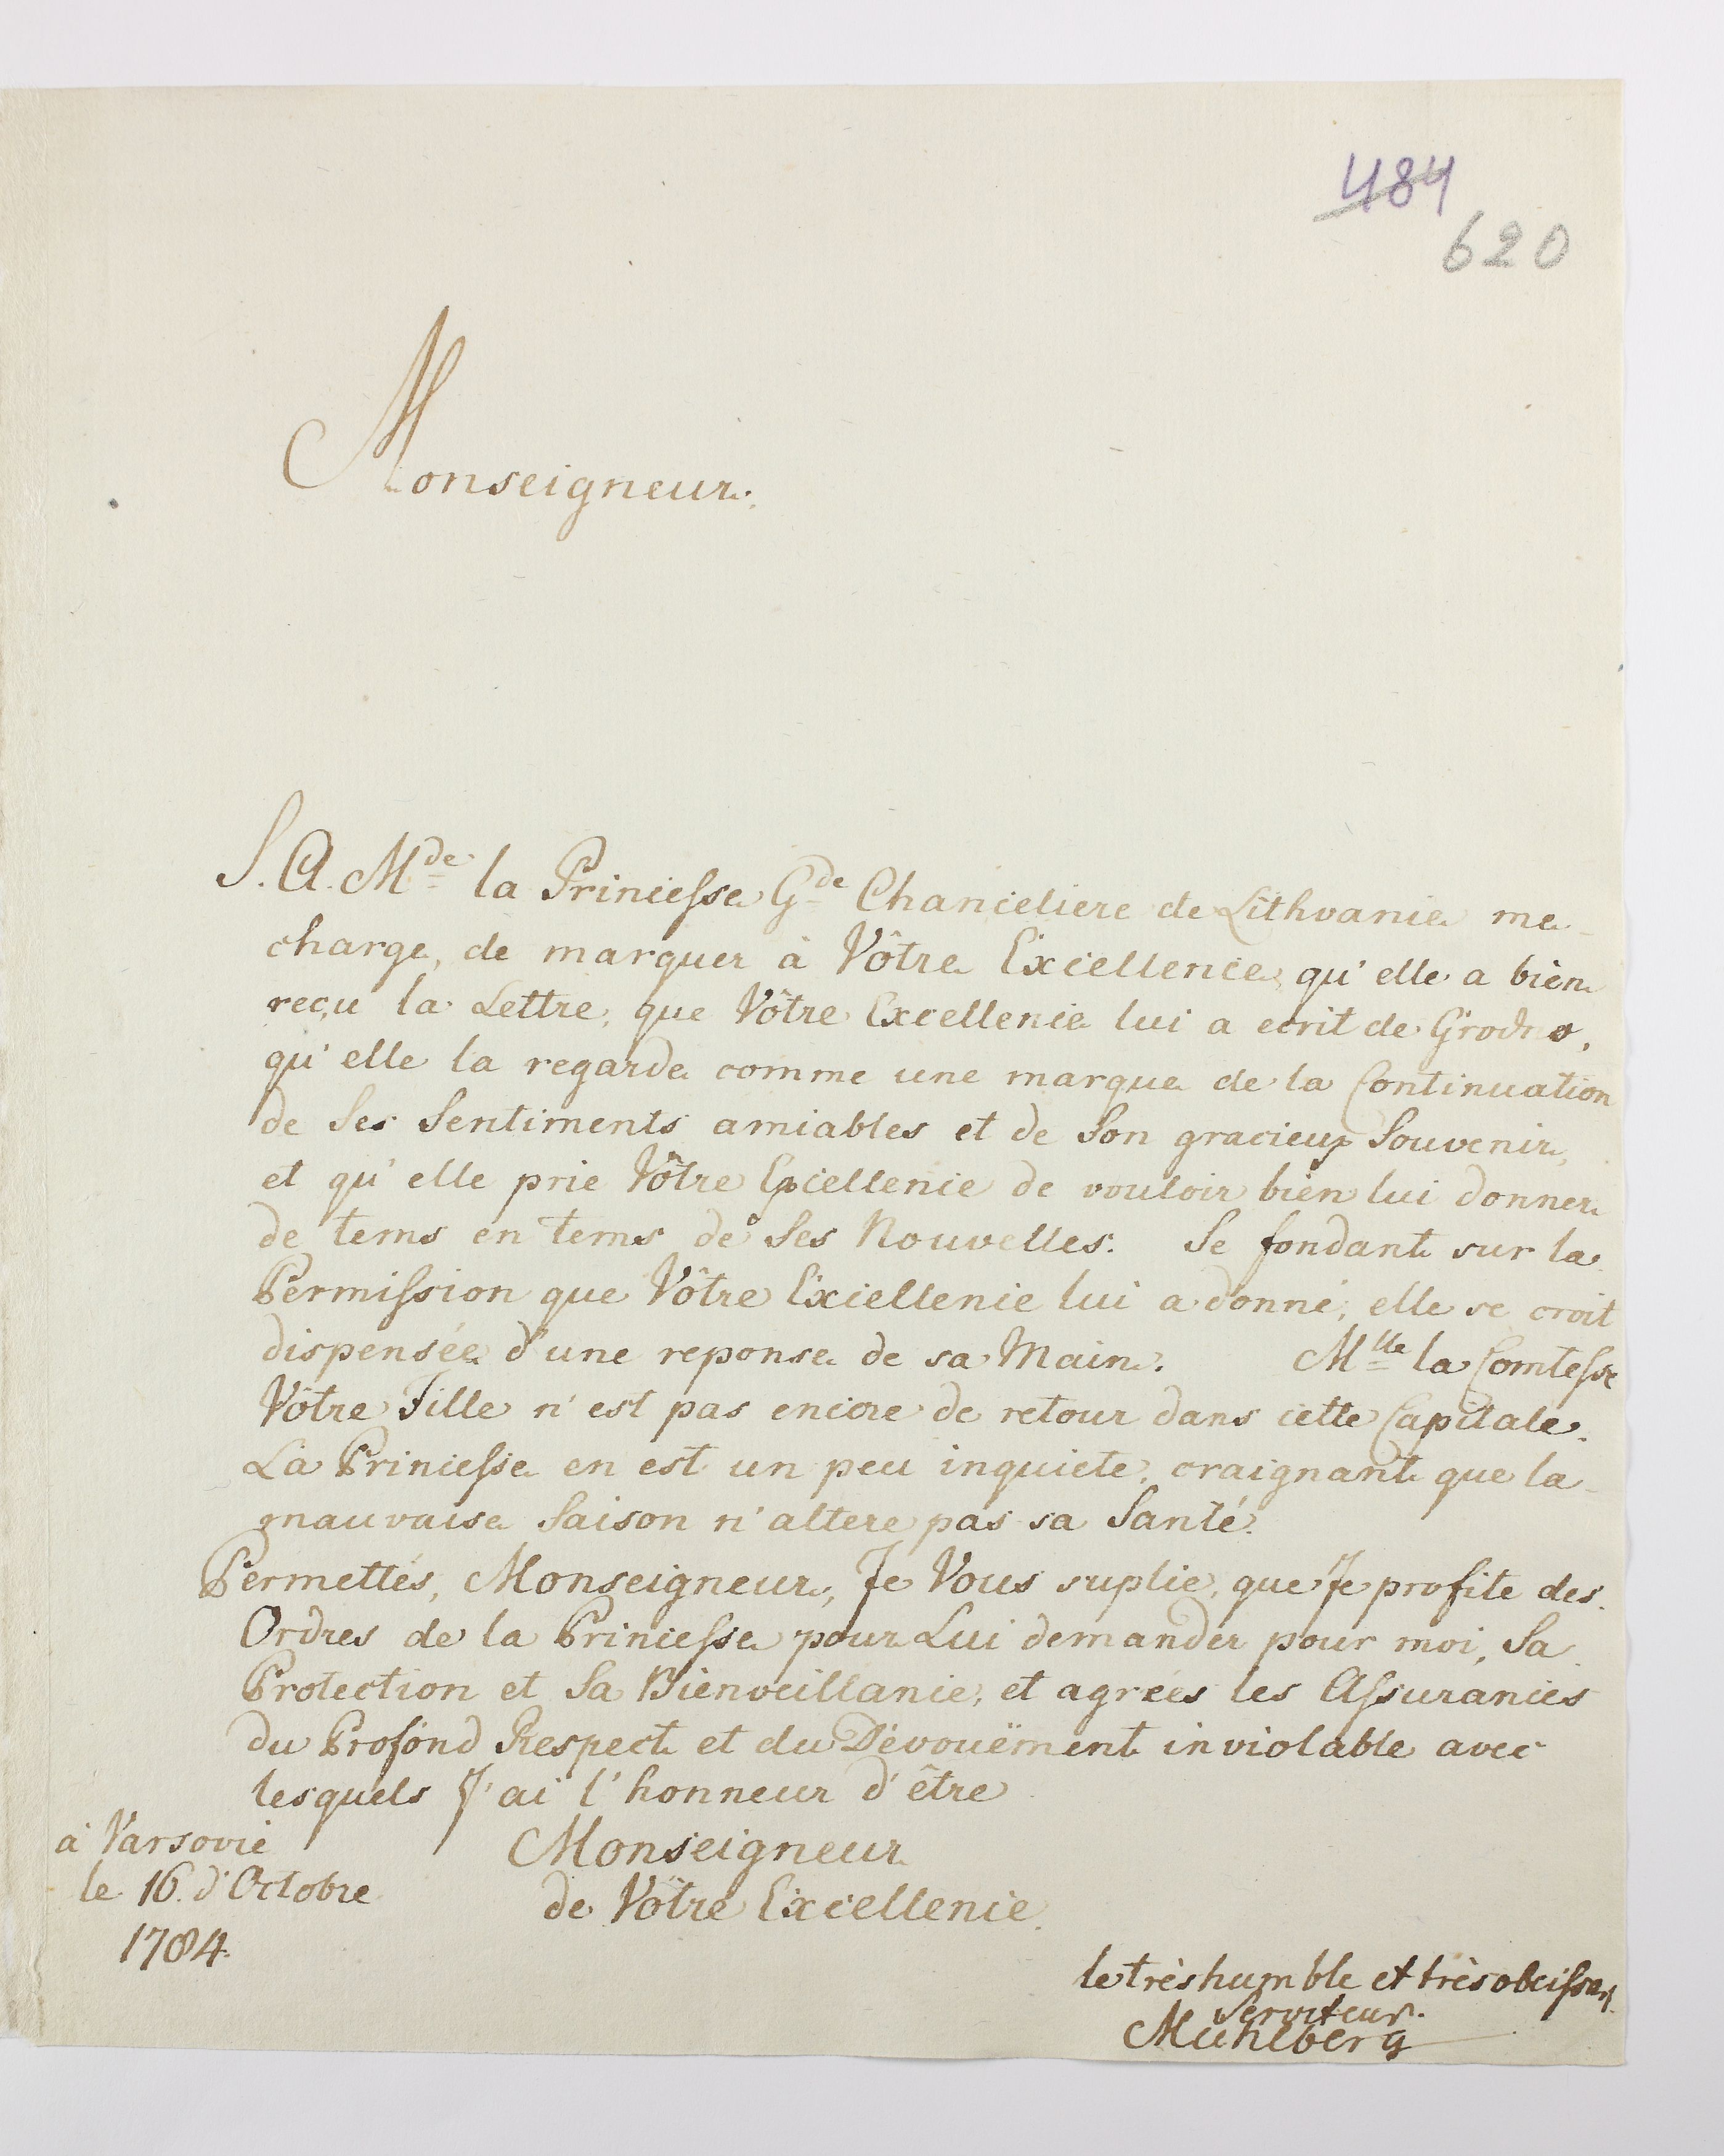 484
620
Monseigneur.
S. A. Mde la Princesse Gde Chanceliere de Lithvanie me
charge, de marquer à Vôtre Excellence, qu'elle a bien
reçu la Lettre, que Vôtre Excellence lui a ecrit de Grodno,
qu'elle la regarde comme une marque de la Continuation
de Ses Sentiments amiables et de Son gracieux Souvenir,
et qu'elle prie Vôtre Excellence de vouloir bien lui donner
de tems en tems de Ses Nouvelles. Se fondant sur la
Permission que Vôtre Excellence lui a donné, elle se croit
dispensée d'une reponse de sa Main. Mlle la Comtesse
Vôtre Fille n'est pas encore de retour dans cette Capitale.
La Princesse en est un peu inquiete, craignant que la
mauvaise Saison n'altere pas sa Santé.
Permettés, Monseigneur, Je Vous suplie, que Je profite des
Ordres de la Princesse pour Lui demander pour moi, Sa
Protection et Sa Bienveillance, et agrées les Assurances
du Profond Respect et du Dévouëment inviolable avec
lesquels J'ai l'honneur d'être
Monseigneur
de Vôtre Excellence
à Varsovie
le 16. d'Octobre
1784.
le très humble et très obeissant
Serviteur.
Mühlberg